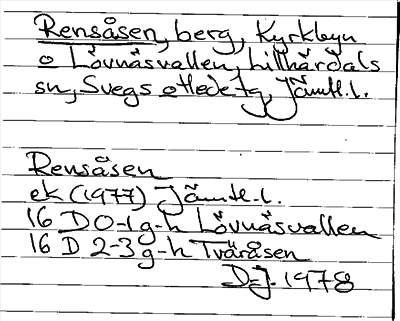 Rensåsen, berg, Kyrkbyn
o Lövnäsvallen, Lillhärdals
sn, Svegs tg, Jämtl.l.
Rensåsen
ek (1977) Jämtl.l.
16 D 0-1 g-h Lövnäsvallen
16 D 2-3 g-h Tvåråsen
D-J. 1978